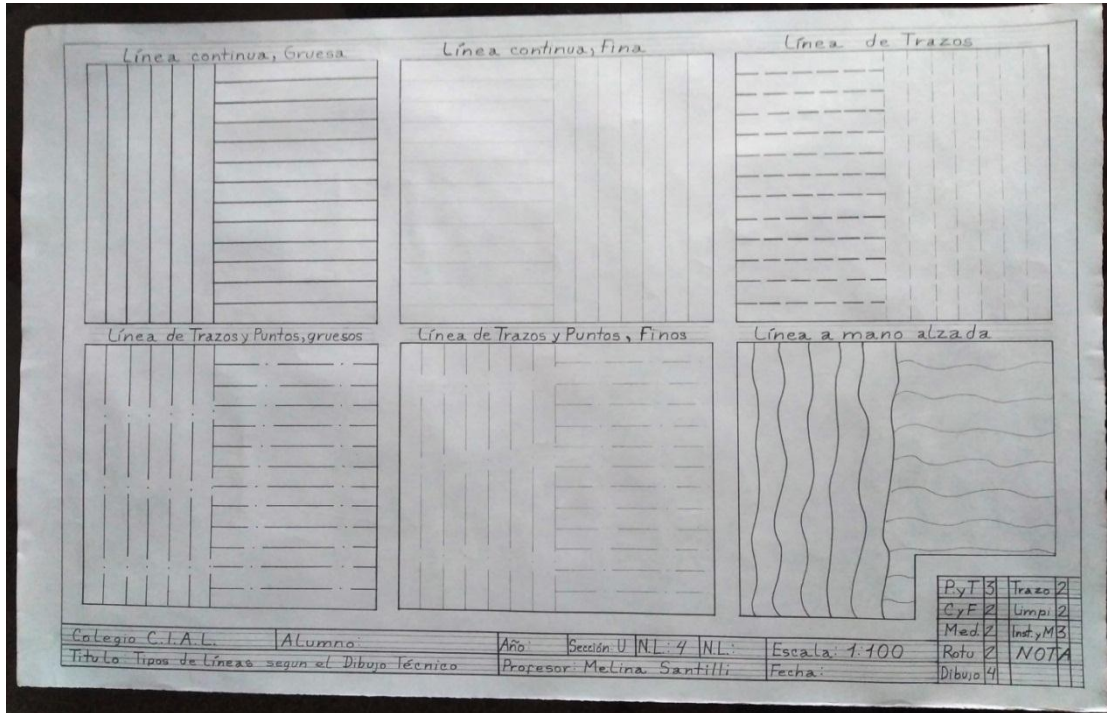 Línea continua, Gruesa
Línea continua, Fina
Línea de Trazos
Línea de Trazos y Puntos, gruesos
Línea de Trazos y Puntos, Finos
Línea a mano alzada
P.yT 3 Trazo 2
CyF 2 Limpi 2
Med. 2 Inst. y M 3
Rotu 2 NOTA
Dibujo 4
Colegio C.I.A.L. Alumno: Año: Sección: U N.L.: 4 N.L.: Escala: 1:100
Titulo: Tipos de Líneas segun el Dibujo Técnico Profesor: Melina Santilli Fecha: